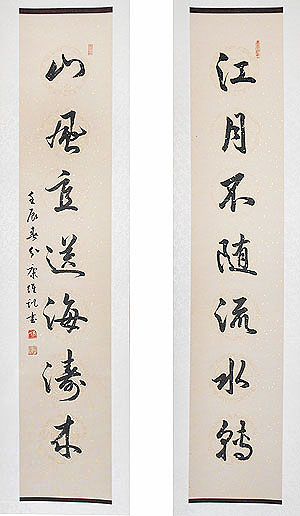 江月不隨流水轉
山風直送海濤來
壬辰春分康書